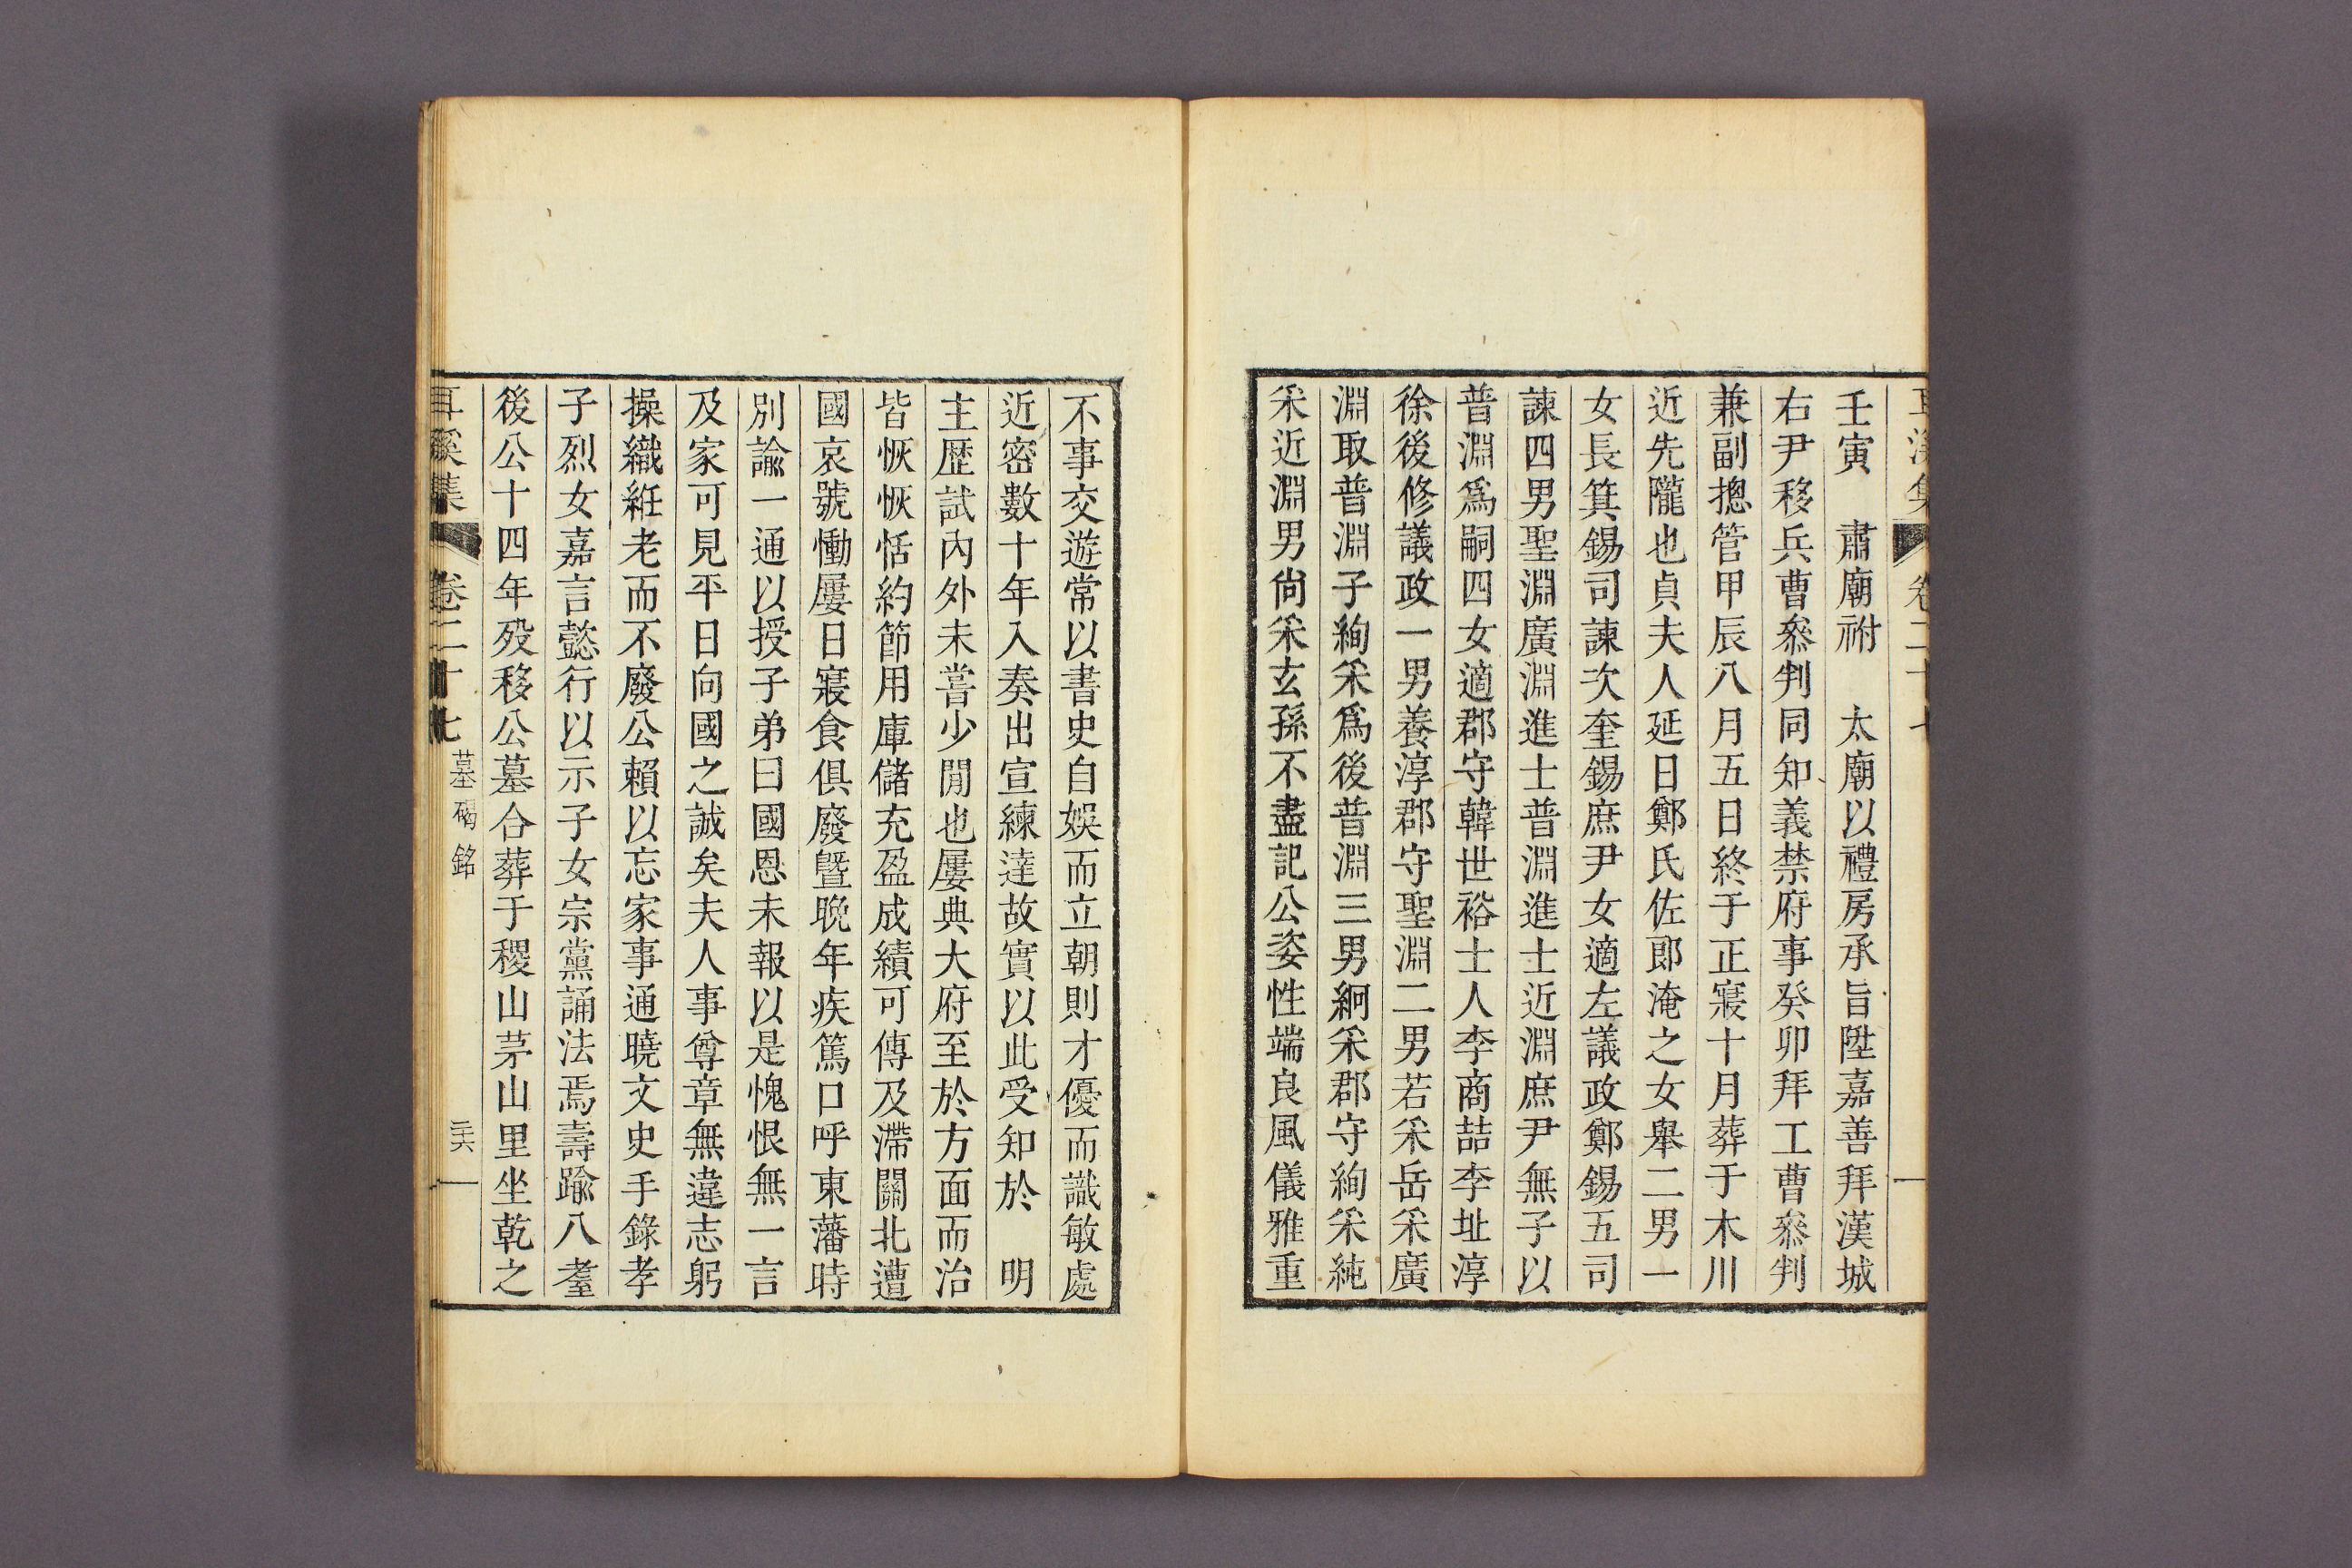 耳溪集 卷二十七
壬寅　肅廟祔　太廟以禮房承旨陞嘉善拜漢城
右尹移兵曹叅判同知義禁府事癸卯拜工曹叅判
兼副摠管甲辰八月五日終于正寢十月葬于木川
近先隴也貞夫人延日鄭氏佐郎淹之女舉二男一
女長箕錫司諫次奎錫庶尹女適左議政鄭錫五司
諫四男聖淵廣淵進士普淵進士近淵庶尹無子以
普淵爲嗣四女適郡守韓世裕士人李商喆李址淳
徐後修議政一男養淳郡守聖淵二男若采岳采廣
淵取普淵子絢采爲後普淵三男絅采郡守絢采純
采近淵男尙采玄孫不盡記公姿性端良風儀雅重
不事交遊常以書史自娛而立朝則才優而識敏處
近密數十年入奏出宣練達故實以此受知於　明
主歷試內外未嘗少閒也屢典大府至於方面而治
皆恢恢恬約節用庫儲充盈成績可傳及滯關北遭
國哀號慟屢日寢食俱廢曁晩年疾篤口呼東藩時
別諭一通以授子弟曰國恩未報以是愧恨無一言
及家可見平日向國之誠矣夫人事尊章無違志躬
操織絍老而不廢公賴以忘家事通曉文史手錄孝
子烈女嘉言懿行以示子女宗黨誦法焉壽踰八耋
後公十四年歿移公墓合葬于稷山茅山里坐乾之
耳溪集 卷二十七 墓碣銘 三十六